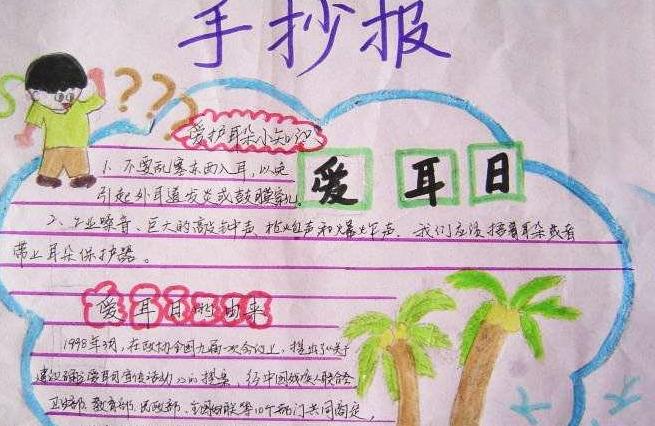 手抄报
爱护耳朵小知识
爱耳日
1、不要乱塞东西入耳，以免
引起外耳道发炎或鼓膜穿孔。
2、工业噪音、巨大的高音钟声、枪炮声和爆炸声，我们应该捂着耳朵或者
带上耳朵保护器。
爱耳日的由来
1998年3月，在政协全国九届一次会议上，提出了《关于
建议确立爱耳日宣传活动》的提案，经中国残疾人联合会
卫生部、教育部、民政部、全国妇联等10个部门共同商定，